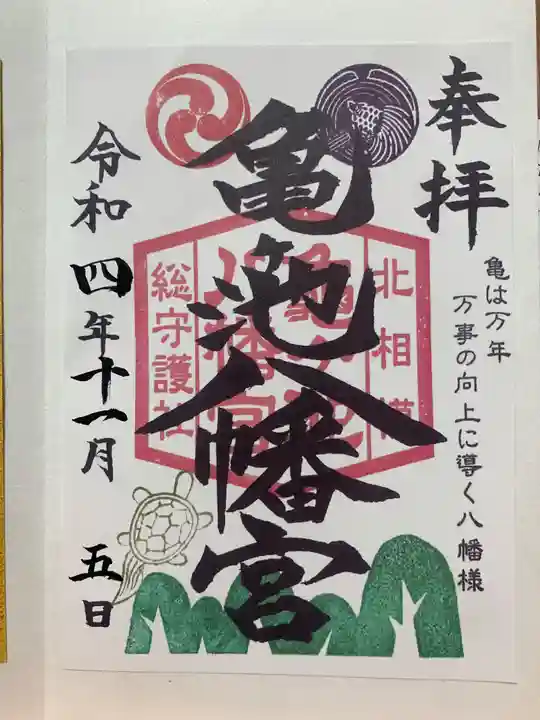 奉拝
亀は万年
万事の向上に導く八幡様
北相模
亀ヶ池
八幡宮
総守護社
亀池八幡宮
令和四年十一月五日